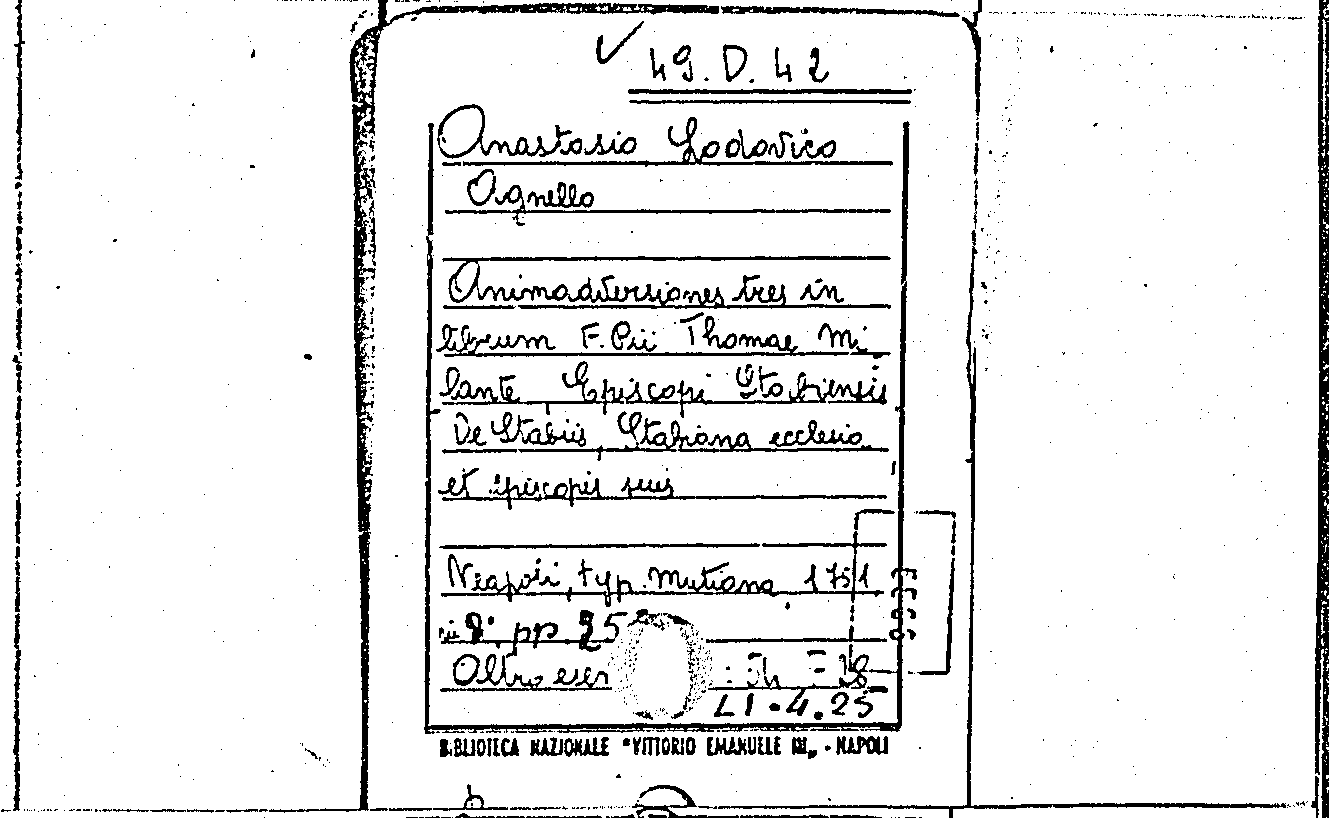 49.D.42
Anastasio Lodovico
Agnello
Animadversiones tres in
librum F. Pii Thomae Mi-
lante, Episcopi Stabiensis
De Stabiis, Stabiana ecclesia
et episcopis suis
Neapoli, typ. Mutiana, 1751
in 8°, pp. 25
Oltro esem
LI.4.25
BIBLIOTECA NAZIONALE "VITTORIO EMANUELE III„ - NAPOLI